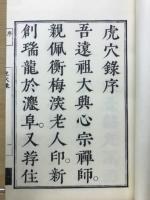 虎穴錄序
吾遠祖大典心宗禪師。
親佩衡梅淡老人印。新
創瑞龍於瀍阜。又莽住
序